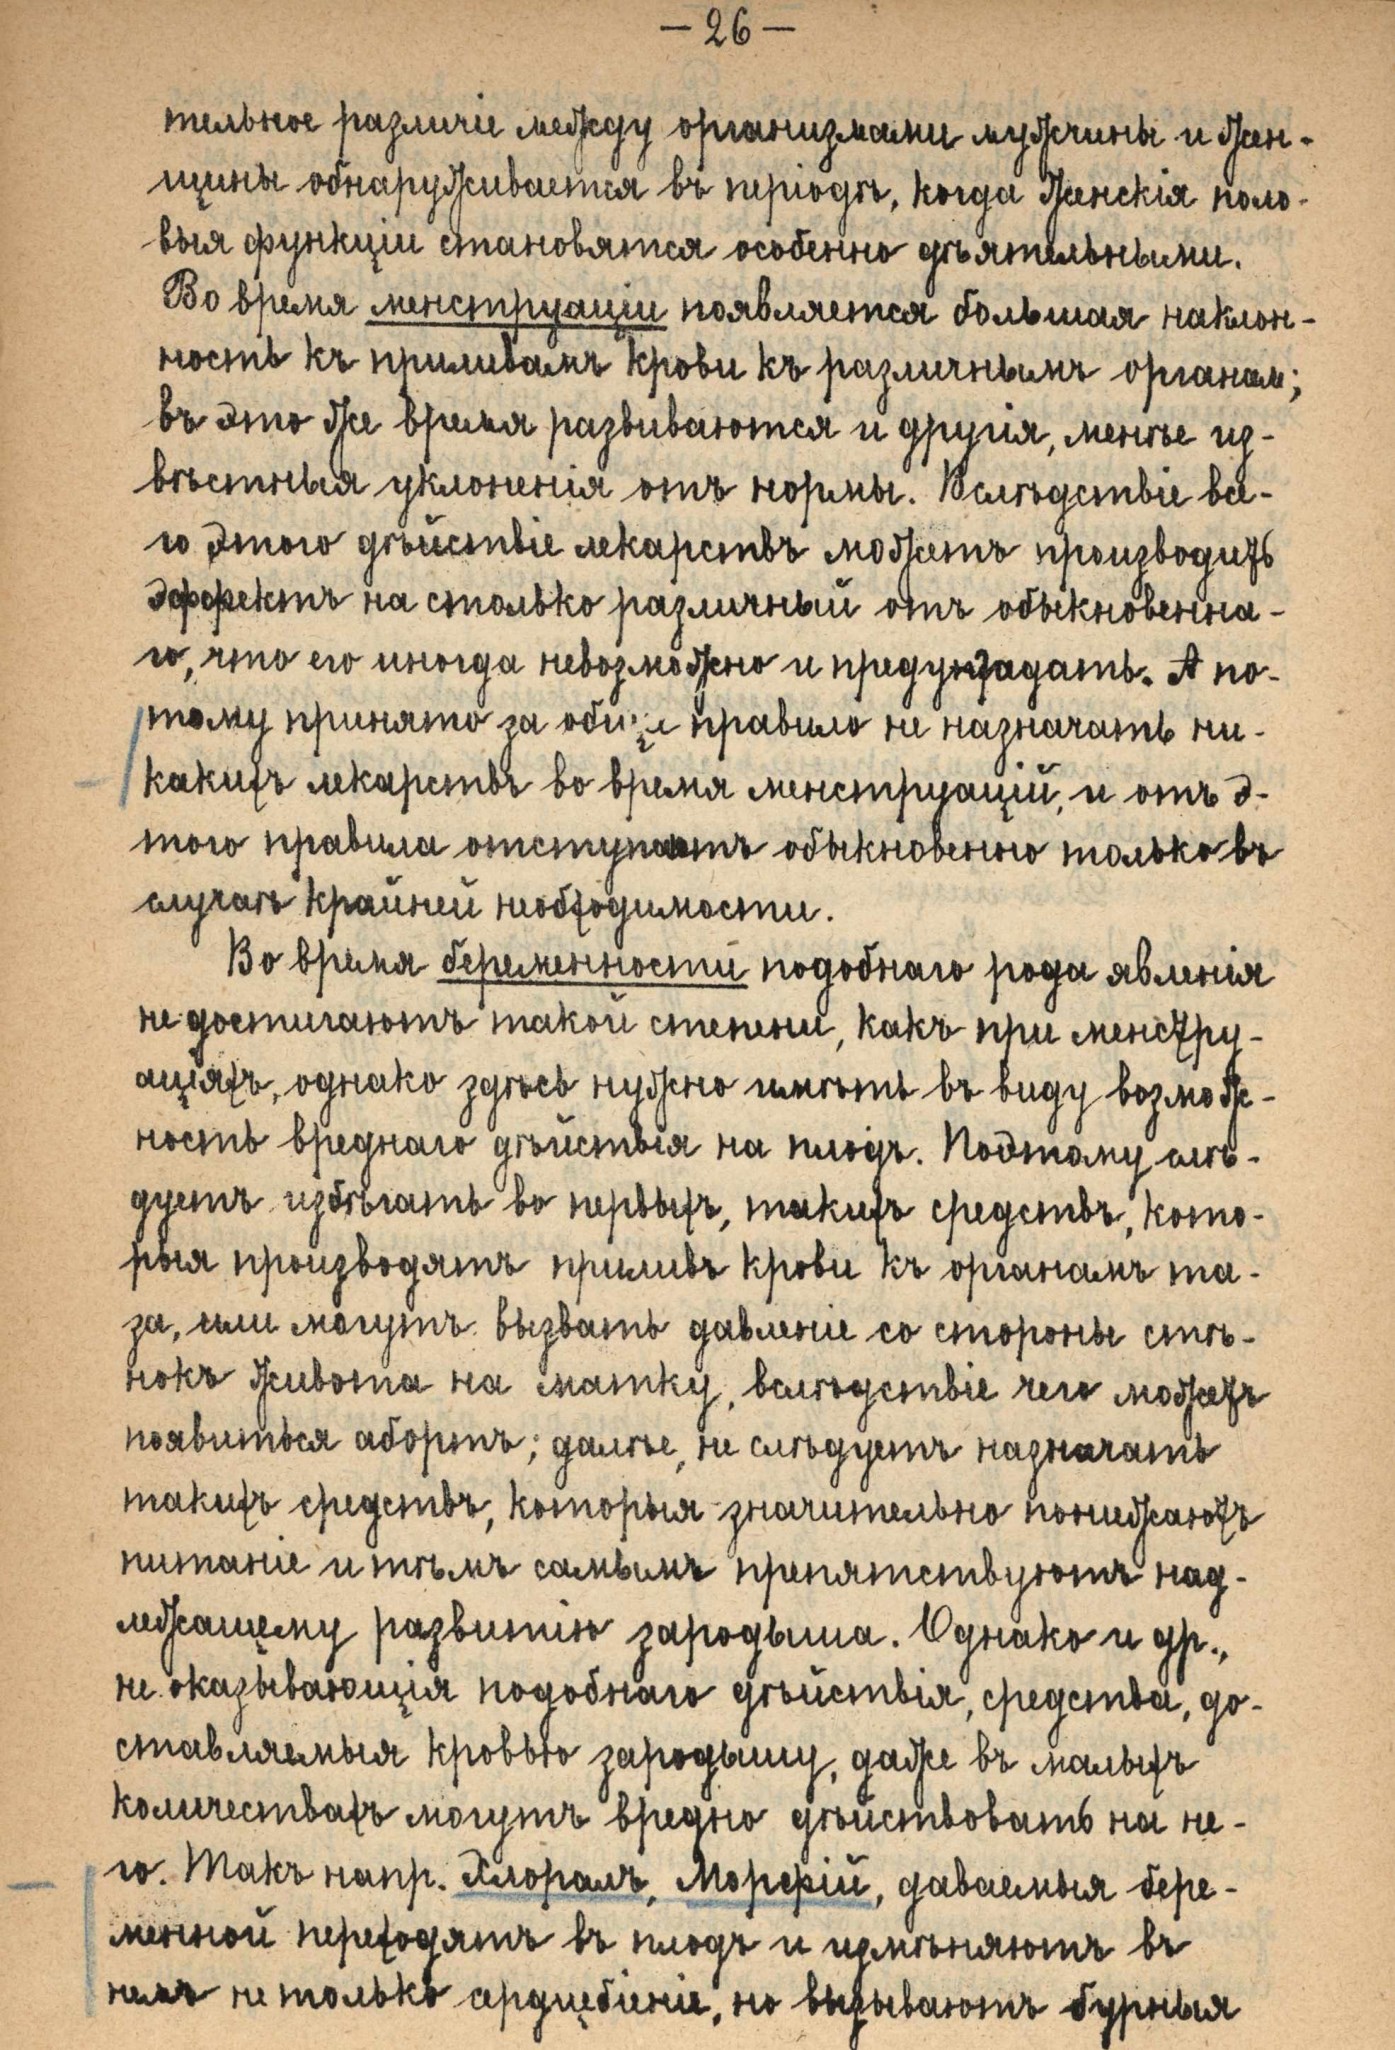 — 26 —
тельное различіе между организмами мужчины и жен-
щины обнаруживается въ періодъ, когда женскія поло-
выя функціи становятся особенно дѣятельными.
Во время менструаціи появляется большая наклон-
ность къ приливамъ крови къ различнымъ органам;
въ это же время развиваются и другія, менѣе из-
вѣстныя уклоненія отъ нормы. Вслѣдствіе все-
го этого дѣйствіе лекарствъ можетъ производить
эффектъ на столько различный отъ обыкновенна-
го, что его иногда невозможно и предугадать. А по-
тому принято за общее правило не назначать ни-
какихъ лекарствъ во время менструацій, и отъ э-
того правила отступаютъ обыкновенно только въ
случаѣ крайней необходимости.
Во время беременности подобнаго рода явленія
не достигаютъ такой степени, какъ при менстру-
аціяхъ, однако здѣсь нужно имѣть въ виду возмож-
ность вреднаго дѣйствія на плодъ. Поэтому слѣ-
дуетъ избѣгать во первыхъ, такихъ средствъ, кото-
рыя производятъ приливъ крови къ органамъ та-
за, или могутъ вызвать давленіе со стороны стѣ-
нокъ живота на матку, вслѣдствіе чего можетъ
появиться абортъ; далѣе, не слѣдуетъ назначать
такихъ средствъ, которыя значительно понижаютъ
питаніе и тѣмъ самымъ препятствуютъ над-
лежащему развитію зародыша. Однако и др.,
не оказывающія подобнаго дѣйствія, средства, до-
ставляемыя кровью зародышу, даже въ малыхъ
количествахъ могутъ вредно дѣйствовать на не-
го. Такъ напр. Хлоралъ, Морфій, даваемыя бере-
менной переходятъ въ плодъ и измѣняютъ въ
немъ не только сердцебіеніе, но вызываютъ бурныя